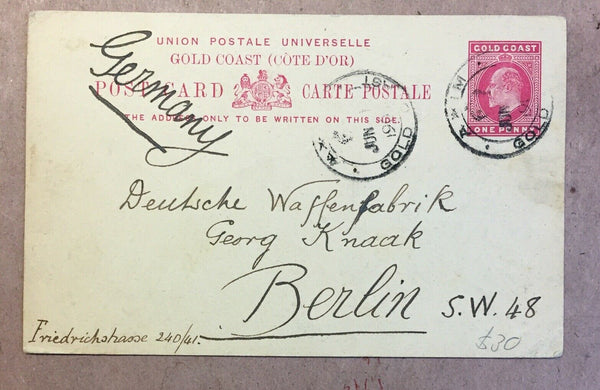 UNION POSTALE UNIVERSELLE
GOLD COAST (CÔTE D'OR)
POST CARD CARTE POSTALE
THE ADDRESS ONLY TO BE WRITTEN ON THIS SIDE.
Germany
GOLD COAST
ONE PENNY
AXIM
JUN
GOLD
AX
JUN
GOLD
Deutsche Waffenfabrik
Georg Knaak
Berlin S.W. 48
Friedrichstrasse 240/41.
$30